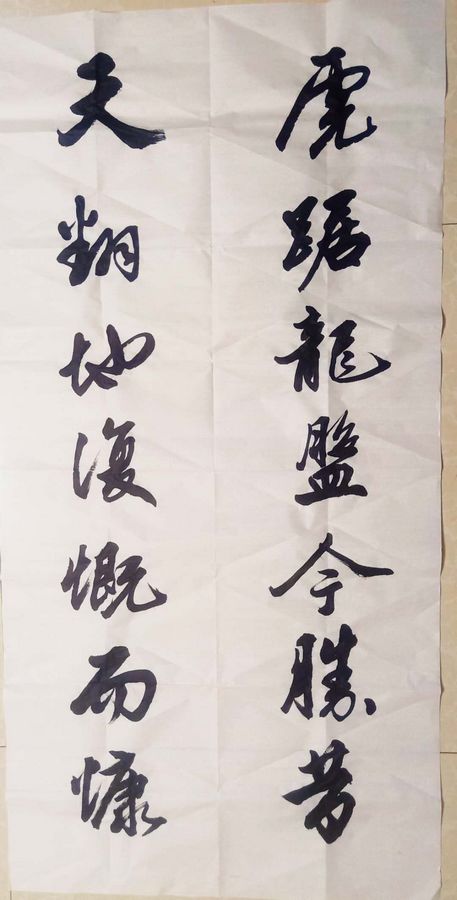 虎踞龍盤今勝昔
天翻地復慨而慷